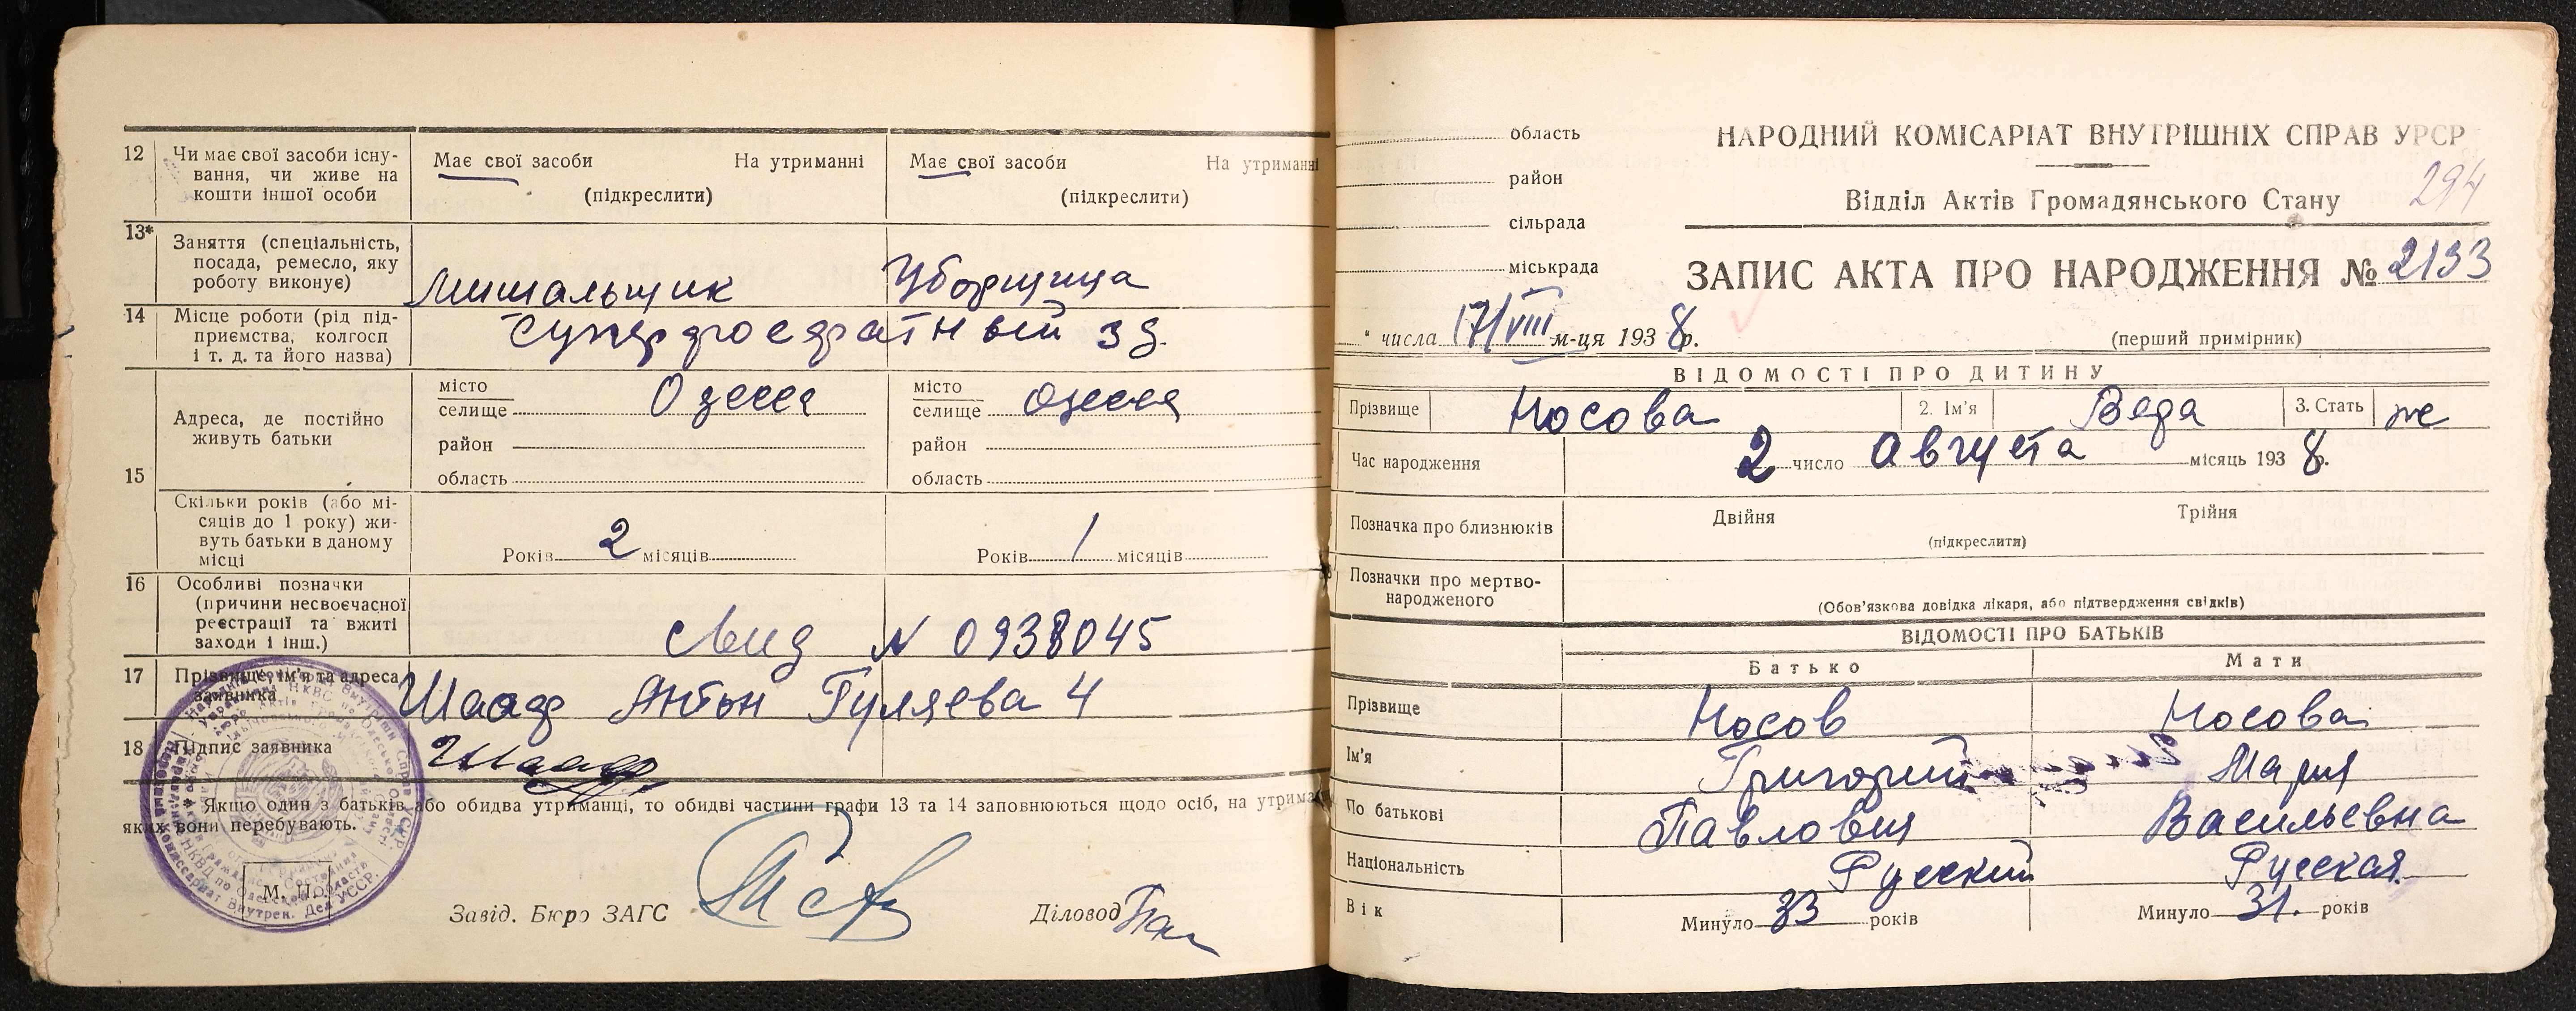 12 Чи має свої засоби існу-
вання, чи живе на
кошти іншої особи
Має свої засоби На утриманні
(підкреслити)
Має свої засоби На утриманні
(підкреслити)
13* Заняття (спеціальність,
посада, ремесло, яку
роботу виконує)
Мишальщик Уборщица
14 Місце роботи (рід під-
приємства, колгосп
і т. д. та його назва)
Суперфосфатный зд.
15 Адреса, де постійно
живуть батьки
місто
селище Одесса
район
область
місто
селище Одесса
район
область
Скільки років (або мі-
сяців до 1 року) жи-
вуть батьки в даному
місці
Років 2 місяців
Років 1 місяців
16 Особливі позначки
(причини несвоєчасної
реєстрації та вжиті
заходи і інш.)
Свид N 0938045
17 Прізвище, ім'я та адреса
заявника
Шаад Антон Гуляева 4
18 Підпис заявника
Шаад
Якщо один з батьків або обидва утриманці, то обидві частини графи 13 та 14 заповнюються щодо осіб, на утрима
яких вони перебувають.
М. П.
Завід. Бюро ЗАГС
Діловод
область
район
сільрада
міськрада
" числа 17/VIII м-ця 1938 р.
НАРОДНИЙ КОМІСАРІАТ ВНУТРІШНІХ СПРАВ УРСР
Відділ Актів Громадянського Стану
294
ЗАПИС АКТА ПРО НАРОДЖЕННЯ № 2133
(перший примірник)
ВІДОМОСТІ ПРО ДИТИНУ
Прізвище Носова 2. Ім'я Веда 3. Стать ж
Час народження 2 число Августа місяць 1938 р.
Позначка про близнюків Двійня Трійня
(підкреслити)
Позначки про мертво-
народженого
(Обов'язкова довідка лікаря, або підтвердження свідків)
ВІДОМОСТІ ПРО БАТЬКІВ
Батько Мати
Прізвище Носов Носова
Ім'я Григорий Мария
По батькові Павлович Васильевна
Національність Русский Русская
Вік Минуло 33 років Минуло 31. років